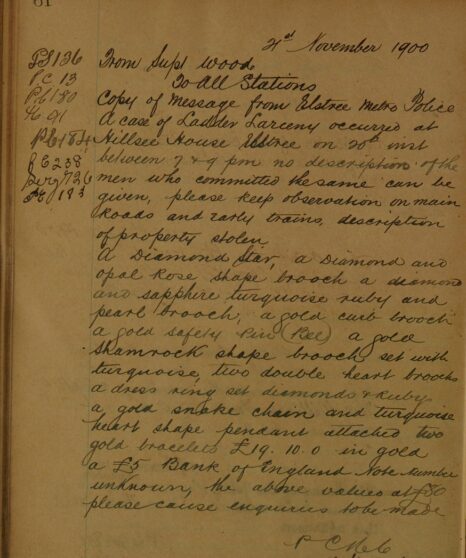 61
21st November 1900
PS 136
From Supt Wood
P C 13
To All Stations
PC 180
Copy of Message from Elstree Metro Police
91
A case of Ladder Larceny occurred at
PC 184
Hillsee House Elstree on 20th inst
238
between 7 & 9 pm no description of the
Serg 726
men who committed the same can be
193
given, please keep observation on main
Roads and early trains, description
of property stolen
A Diamond Star, a Diamond and
opal Rose shape brooch a diamond
and sapphire turquoise ruby and
pearl brooch, a gold curb brooch
a gold safety Pin (Bee) a gold
Shamrock shape brooch set with
turquoise, two double heart broochs
a dress ring set diamonds & Ruby
a gold snake chain and turquoise
heart shape pendant attached two
gold bracelets £19. 10. 0 in gold
a £5 Bank of England Note Number
unknown, the above values at £80
please cause enquiries to be made
P C